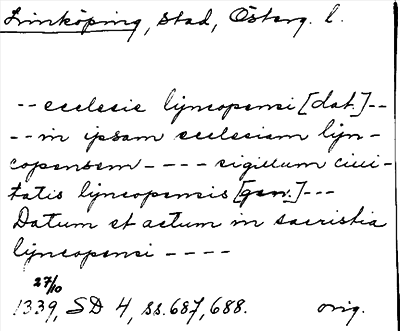 Linköping, stad, Österg. l.
-- ecclesie lijncopensi [dat.]--
-- in ipsam ecclesiam lijn-
copensem - - - - sigillum ciui-
tatis lijncopensis [gen.]---
Datum et actum in sacristia
lijncopensi - - - -
27/10
1339, SD 4, ss. 687, 688. orig.